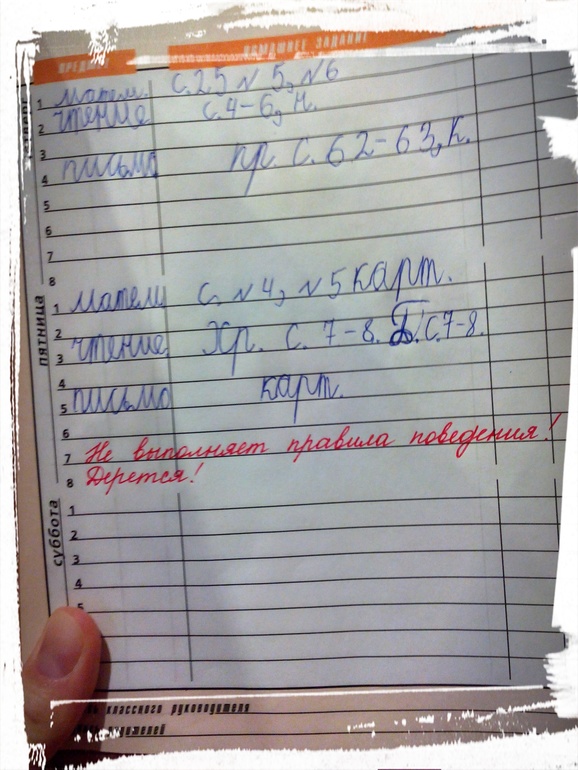 ДОМАШНЕЕ ЗАДАНИЕ
1 матем. с.25 № 5, №6
2 чтение с.4-6, н.
3
4 письмо пр. с. 62-63, к.
5
6
7
8
ПЯТНИЦА
1 матем. с, №4, №5 карт.
2
3 чтение. Хр. с. 7-8. Б. с.7-8.
4
5 письмо карт.
6
7 Не выполняет правила поведения!
8 Дерется!
СУББОТА
1
2
3
4
5
классного руководителя